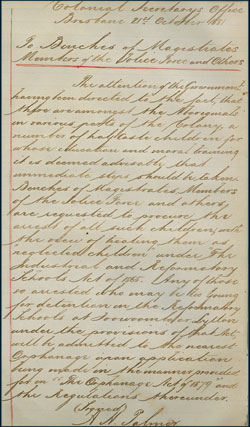 Colonial Secretary's Office
Brisbane 21st October 1881
To Benches of Magistrates
Members of the Police Force and Others
The attention of the Government
having been directed to the fact, that
there are amongst the Aboriginals
in various parts of the Colony, a
number of half caste children for
whose education and moral training
it is deemed advisable that
immediate steps should be taken
Benches of Magistrates Members
of the Police Force and others,
are requested to procure the
arrest of all such children, with
the view of treating them as
neglected children under the
Industrial and Reformatory
Schools Act of 1865. Any of those
so arrested who may be too young
for detention in the Reformatory
Schools at Toowoomba or Lytton
under the provisions of that Act
will be admitted to the nearest
Orphanage upon application
being made in the manner provided
for in "The Orphanage Act of 1879" and
the Regulations thereunder.
(Signed)
A. H. Palmer